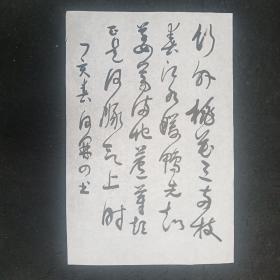 竹外桃花三两枝
春江水暖鸭先知
蒌蒿满地蘆芽短
正是河豚欲上时
丁亥春
书